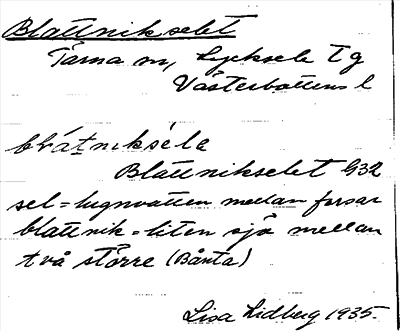 Blattnikselet
Tärna sn, Lycksele tg
Västerbottens l
blátniksḗla
Blattnikselet G32
sel = lugnvatten mellan forsar
blattnik = liten sjö mellan
två större (Bånta)
Lisa Lidberg 1935.